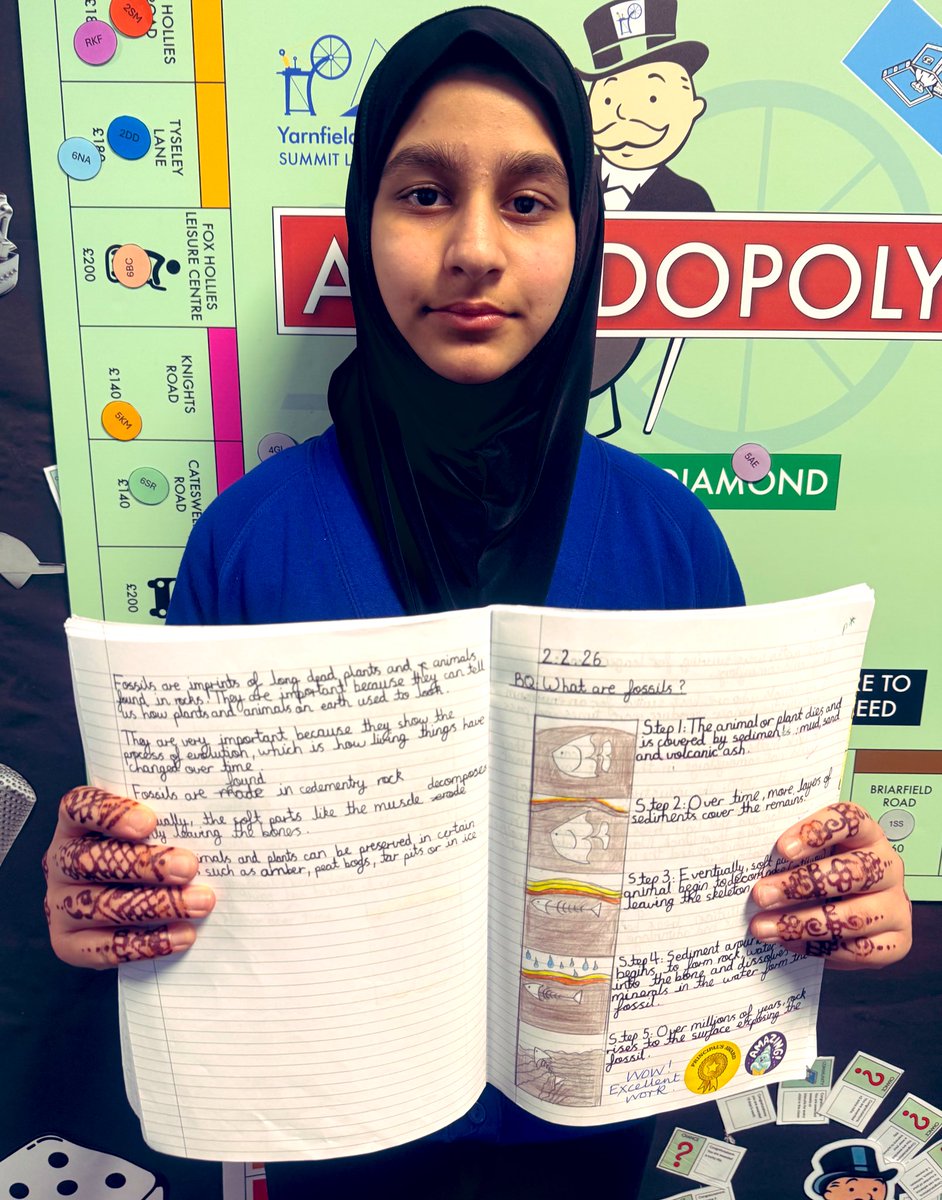 HOLLIES
ROAD
2SM
RKF
£18
TYSELEY
LANE
2DD
6NA
£180
FOX HOLLIES
LEISURE CENTRE
6BC
£200
KNIGHTS
ROAD
£140
5KM
ROAD
£140
6SR
£200
Yarnfield
SUMMIT L
DOPOLY
5AE
DIAMOND
RE TO
EED
BRIARFIELD
ROAD
1SS
Fossils are imprints of long dead plants and animals
found in rocks. They are important because they can tell
us how plants and animals on earth used to look.
They are very important because they show the
process of evolution, which is how living things have
changed over time
found
Fossils are made in cedementry rock
ually, the soft parts like the muscle erode decomposes
leaving the bones.
imals and plants can be preserved in certain
such as amber, peat bogs, tar pits or in ice
2.2.26
BQ: What are fossils?
Step 1: The animal or plant dies and
is covered by sediments: mud, sand
and volcanic ash.
Step 2: Over time, more layers of
sediments cover the remains.
Step 3: Eventually, soft pa
animal begin to decom
leaving the skeleton
Step 4: Sediment aroun
begins to form rock, water
into the bone and dissolves
minerals in the water form the
fossil.
Step 5: Over millions of years, rock
rises to the surface exposing the
fossil.
WOW!
Excellent
work
PRINCIPAL'S AWARD
AMAZING!
CHANCE
?
?
?